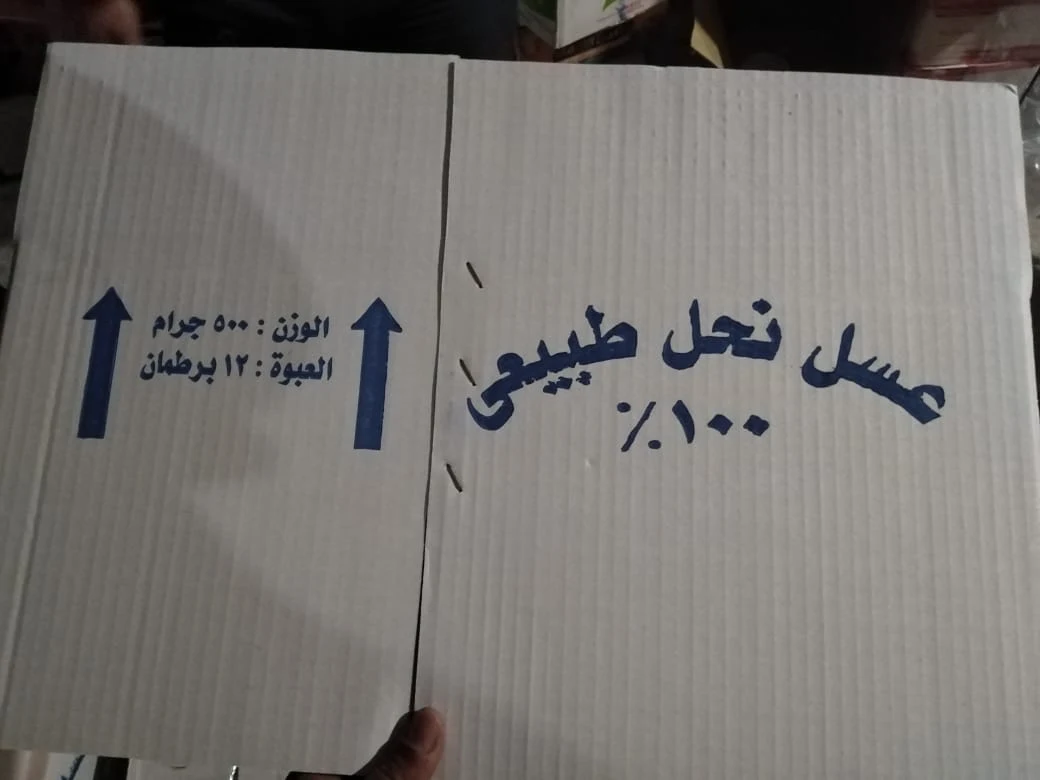 عسل نحل طبيعى
١٠٠٪
الوزن : ٥٠٠ جرام
العبوة : ١٢ برطمان